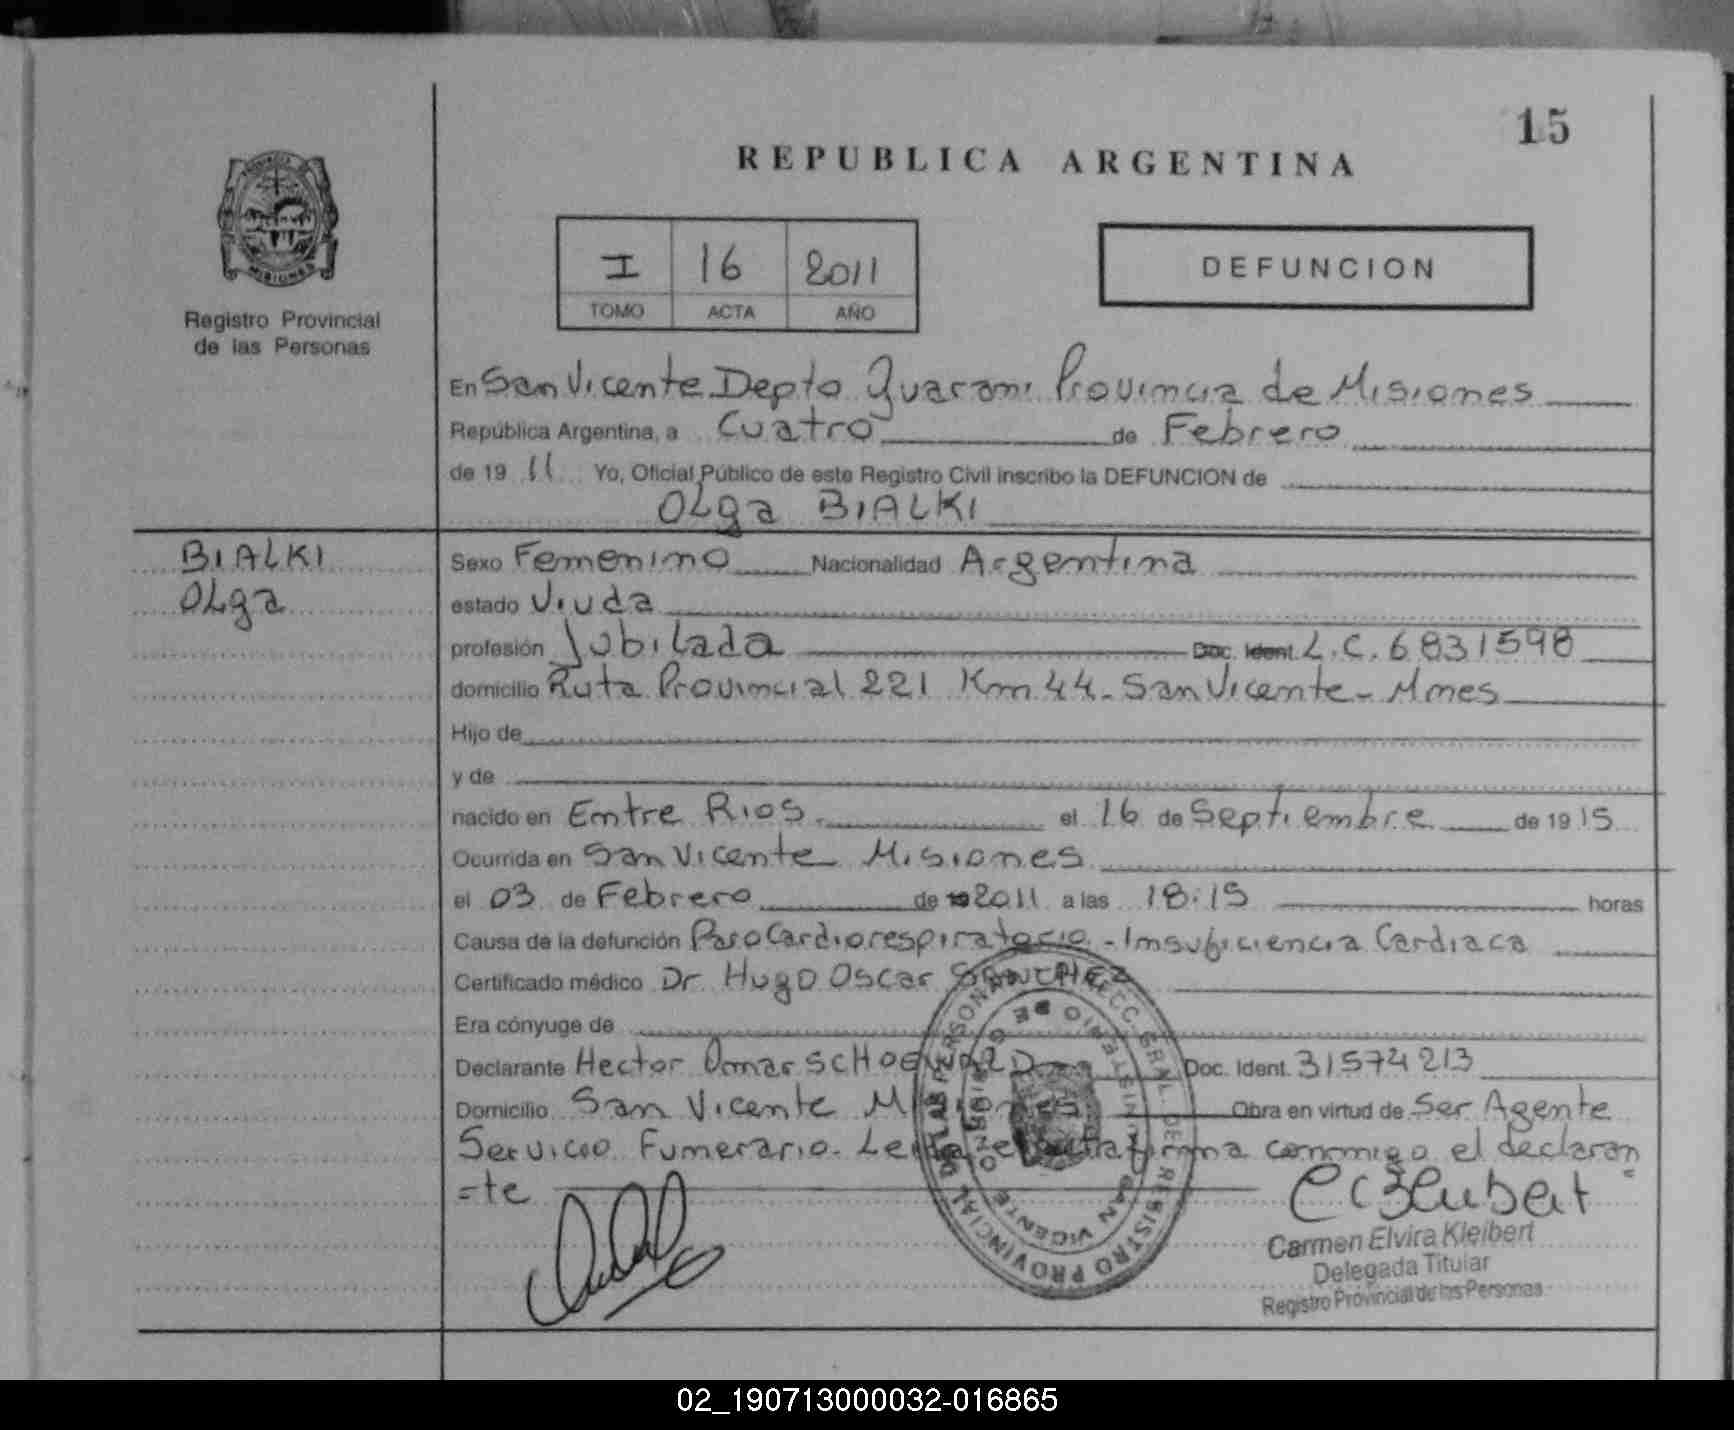 15
REPUBLICA ARGENTINA
PROVINCIA
MISIONES
Registro Provincial
de las Personas
I 16 2011
TOMO ACTA AÑO
DEFUNCION
En San Vicente Depto Guarani Provincia de Misiones
República Argentina, a Cuatro de Febrero
de 19 11 Yo, Oficial Público de este Registro Civil inscribo la DEFUNCION de
OLga BIALKI
BIALKI
OLga
Sexo Femenino Nacionalidad Argentina
estado Viuda
profesión Jubilada Doc. Ident. L.C. 6831598
domicilio Ruta Provincial 221 Km 44- San Vicente- Mnes
Hijo de
y de
nacido en Entre Rios. el 16 de Septiembre de 19 15
Ocurrida en San Vicente Misiones
el 03 de Febrero de 19 2011 a las 18:15 horas
Causa de la defunción Paro Cardiorespiratorio - Insuficiencia Cardiaca
Certificado médico Dr. Hugo Oscar SANCHEZ
Era cónyuge de
Declarante Hector Omar SCHOENVALD Doc. Ident. 31574213
Domicilio San Vicente Misiones Obra en virtud de Ser Agente
Servicio Funerario. Leida el acta firma conmigo el declaran
=te
Carmen Elvira Kleibert
Delegada Titular
Registro Provincial de las Personas
DIRECC. GRAL. DEL REGISTRO PROVINCIAL DE LAS PERSONAS
MINISTERIO DE GOBIERNO
SAN VICENTE
02_190713000032-016865